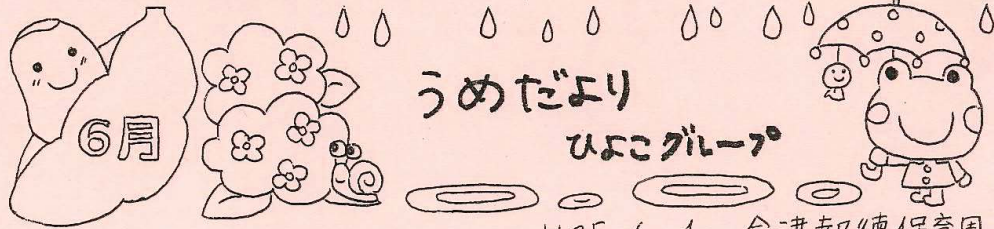 6月
うめだより
ひよこグループ
H25.6.1 会津報徳保育園